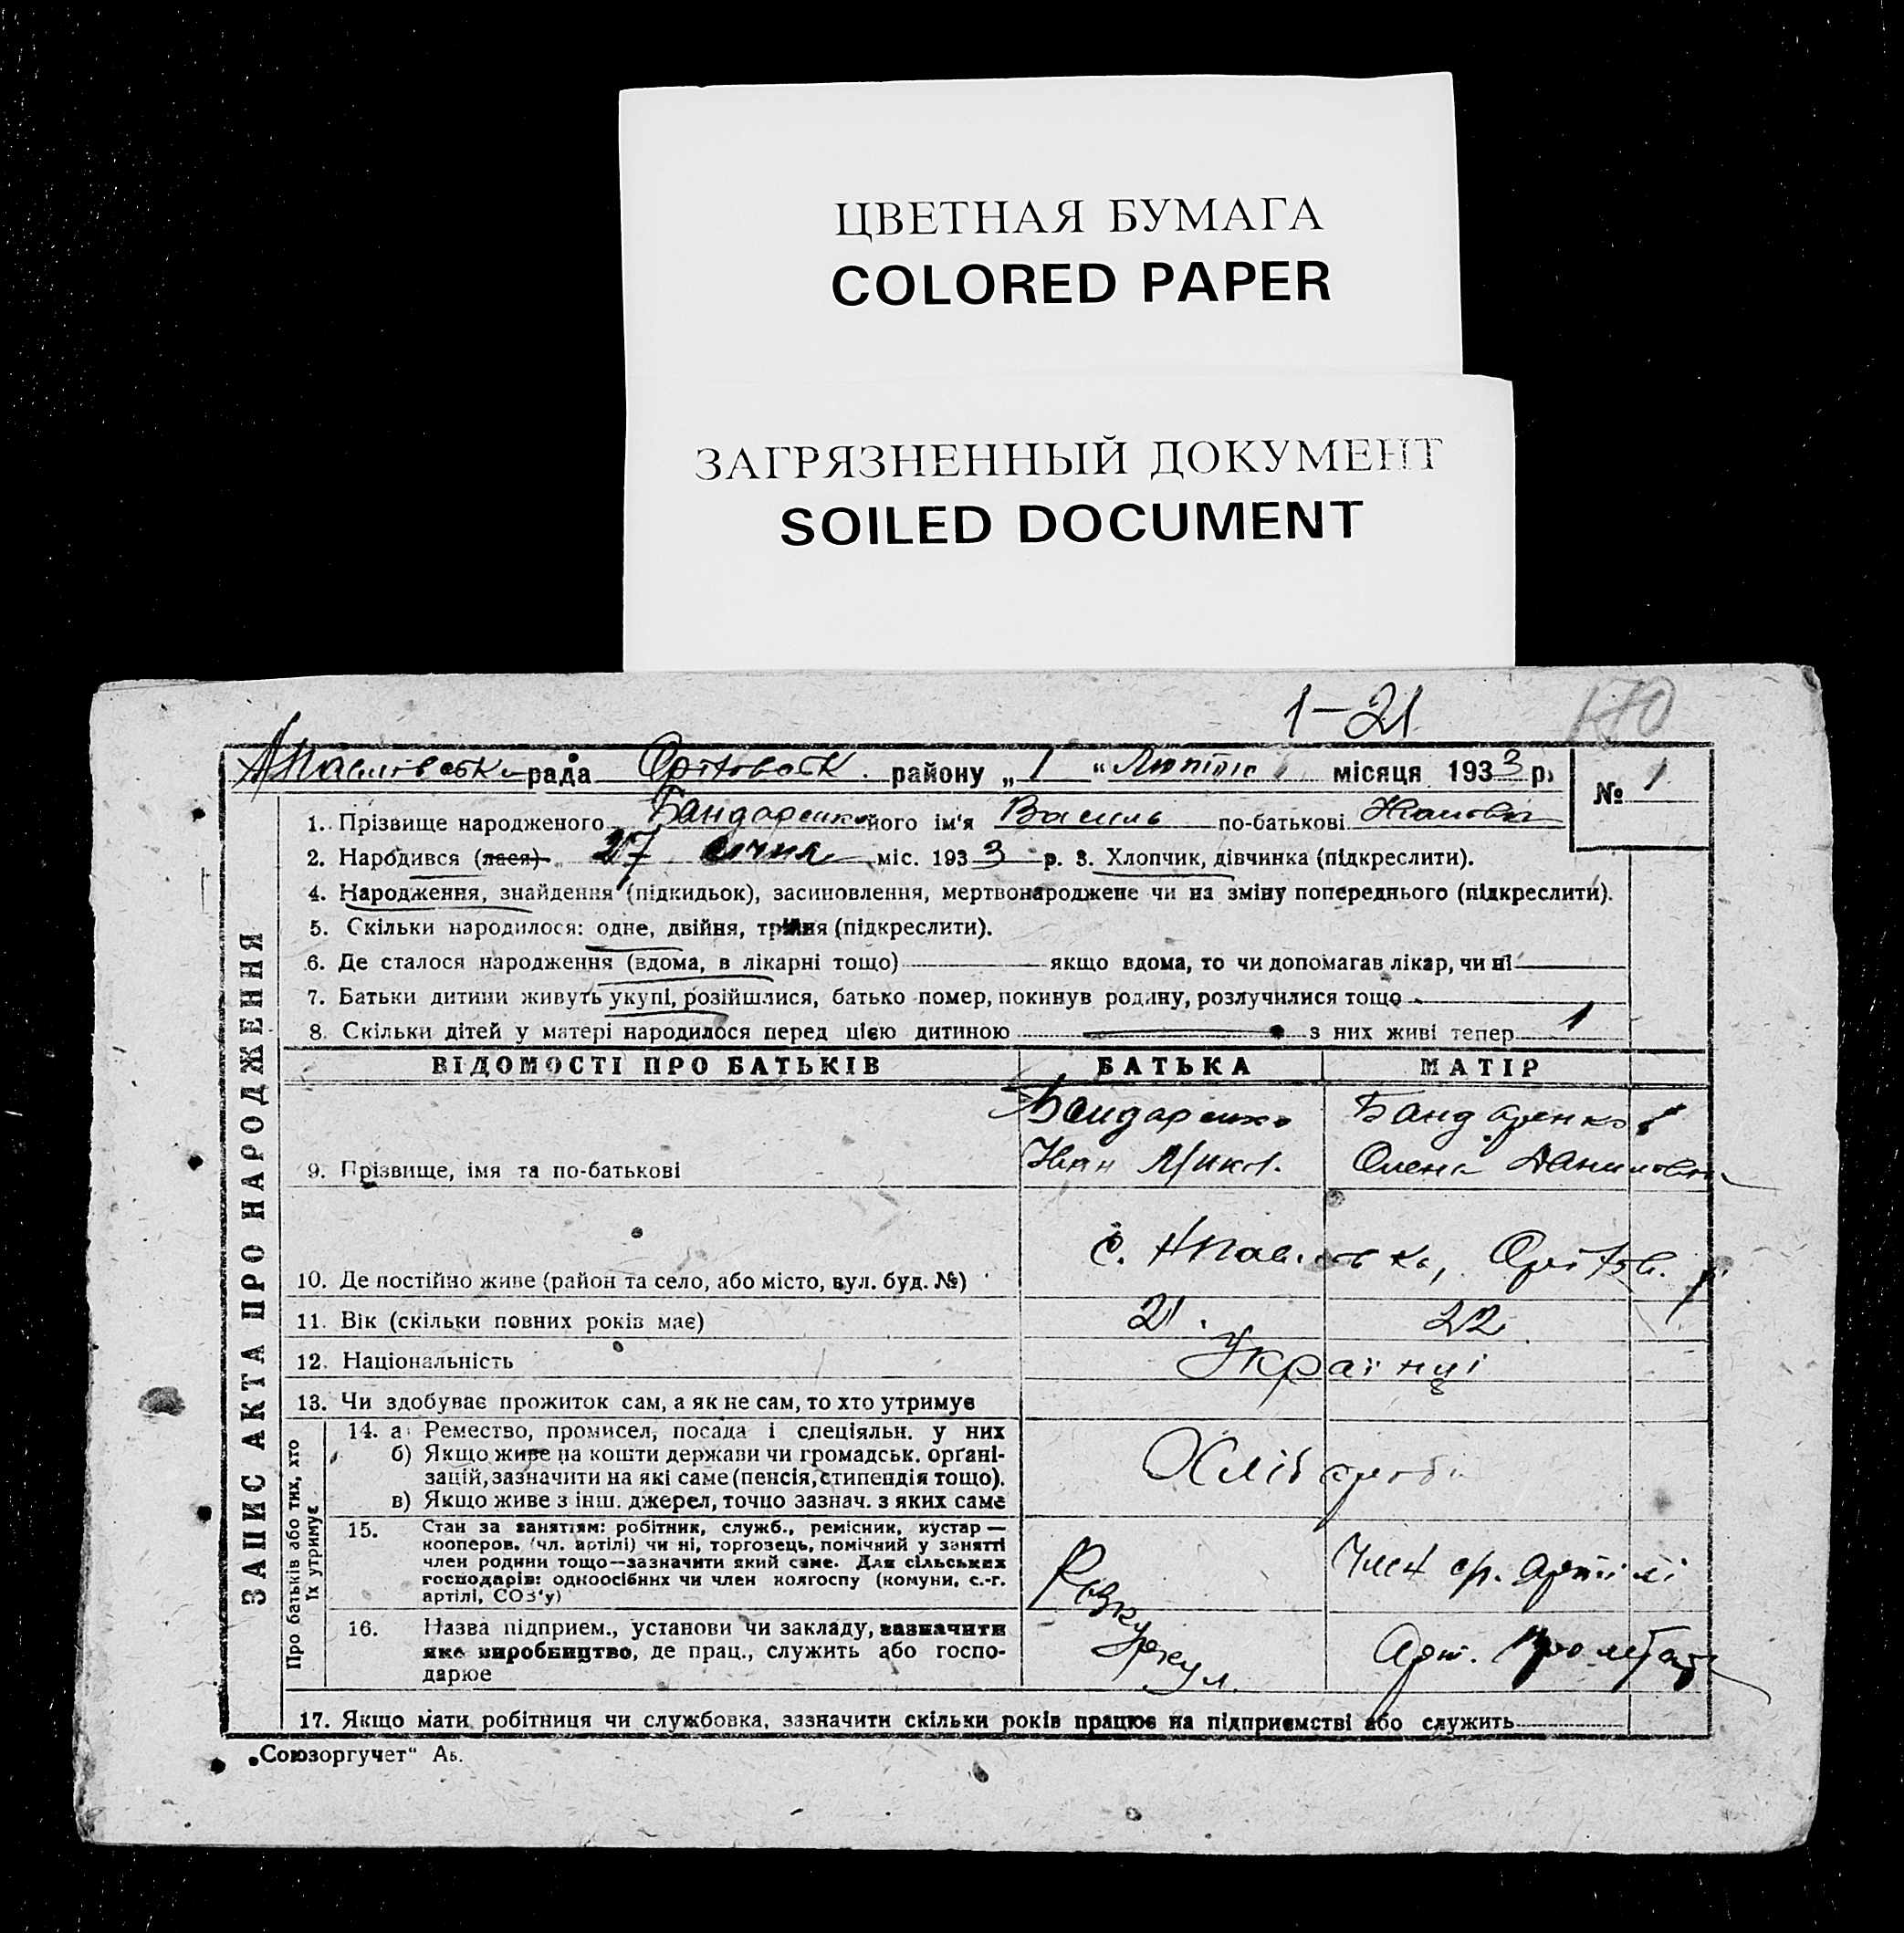 ЦВЕТНАЯ БУМАГА
COLORED PAPER
ЗАГРЯЗНЕННЫЙ ДОКУМЕНТ
SOILED DOCUMENT
1–21 170
рада району „ 1 “ місяця 1933 р.
№ 1
1. Прізвище народженого Бандаренко його ім'я Василь по-батькові
2. Народився (лася) 27 січня міс. 1933 р. 3. Хлопчик, дівчинка (підкреслити).
4. Народження, знайдення (підкидьок), засиновлення, мертвонароджене чи на зміну попереднього (підкреслити).
5. Скільки народилося: одне, двійня, трійня (підкреслити).
6. Де сталося народження (вдома, в лікарні тощо) якщо вдома, то чи допомагав лікар, чи ні
7. Батьки дитини живуть укупі, розійшлися, батько помер, покинув родину, розлучилися тощо
8. Скільки дітей у матері народилося перед цією дитиною з них живі тепер 1
ЗАПИС АКТА ПРО НАРОДЖЕННЯ
ВІДОМОСТІ ПРО БАТЬКІВ БАТЬКА МАТІР
Бандаренко Бандаренко
9. Прізвище, імя та по-батькові Іван Микол. Олена Даниловна
10. Де постійно живе (район та село, або місто, вул. буд. №) с.
11. Вік (скільки повних років має) 21. 22
12. Національність Українці
13. Чи здобуває прожиток сам, а як не сам, то хто утримує
Про батьків або тих, хто їх утримує
14. а) Ремество, промисел, посада і спеціяльн. у них
б) Якщо живе на кошти держави чи громадськ. орґані-
зацій, зазначити на які саме (пенсія, стипендія тощо).
в) Якщо живе з інш. джерел, точно зазнач. з яких саме
Хлібороби
15. Стан за заняттям: робітник, служб., ремісник, кустар —
кооперов. (чл. артілі) чи ні, торговець, помічний у занятті
член родини тощо—зазначити який саме. Для сільських
господарів: одноосібних чи член колгоспу (комуни, с.-г.
артілі, СОЗ'у)
Член с/г. артілі
16. Назва підприєм., установи чи закладу, зазначити
яке виробництво, де прац., служить або госпо-
дарює
Арт.
17. Якщо мати робітниця чи службовка, зазначити скільки років працює на підприємстві або служить
„Союзоргучет“ Аь.